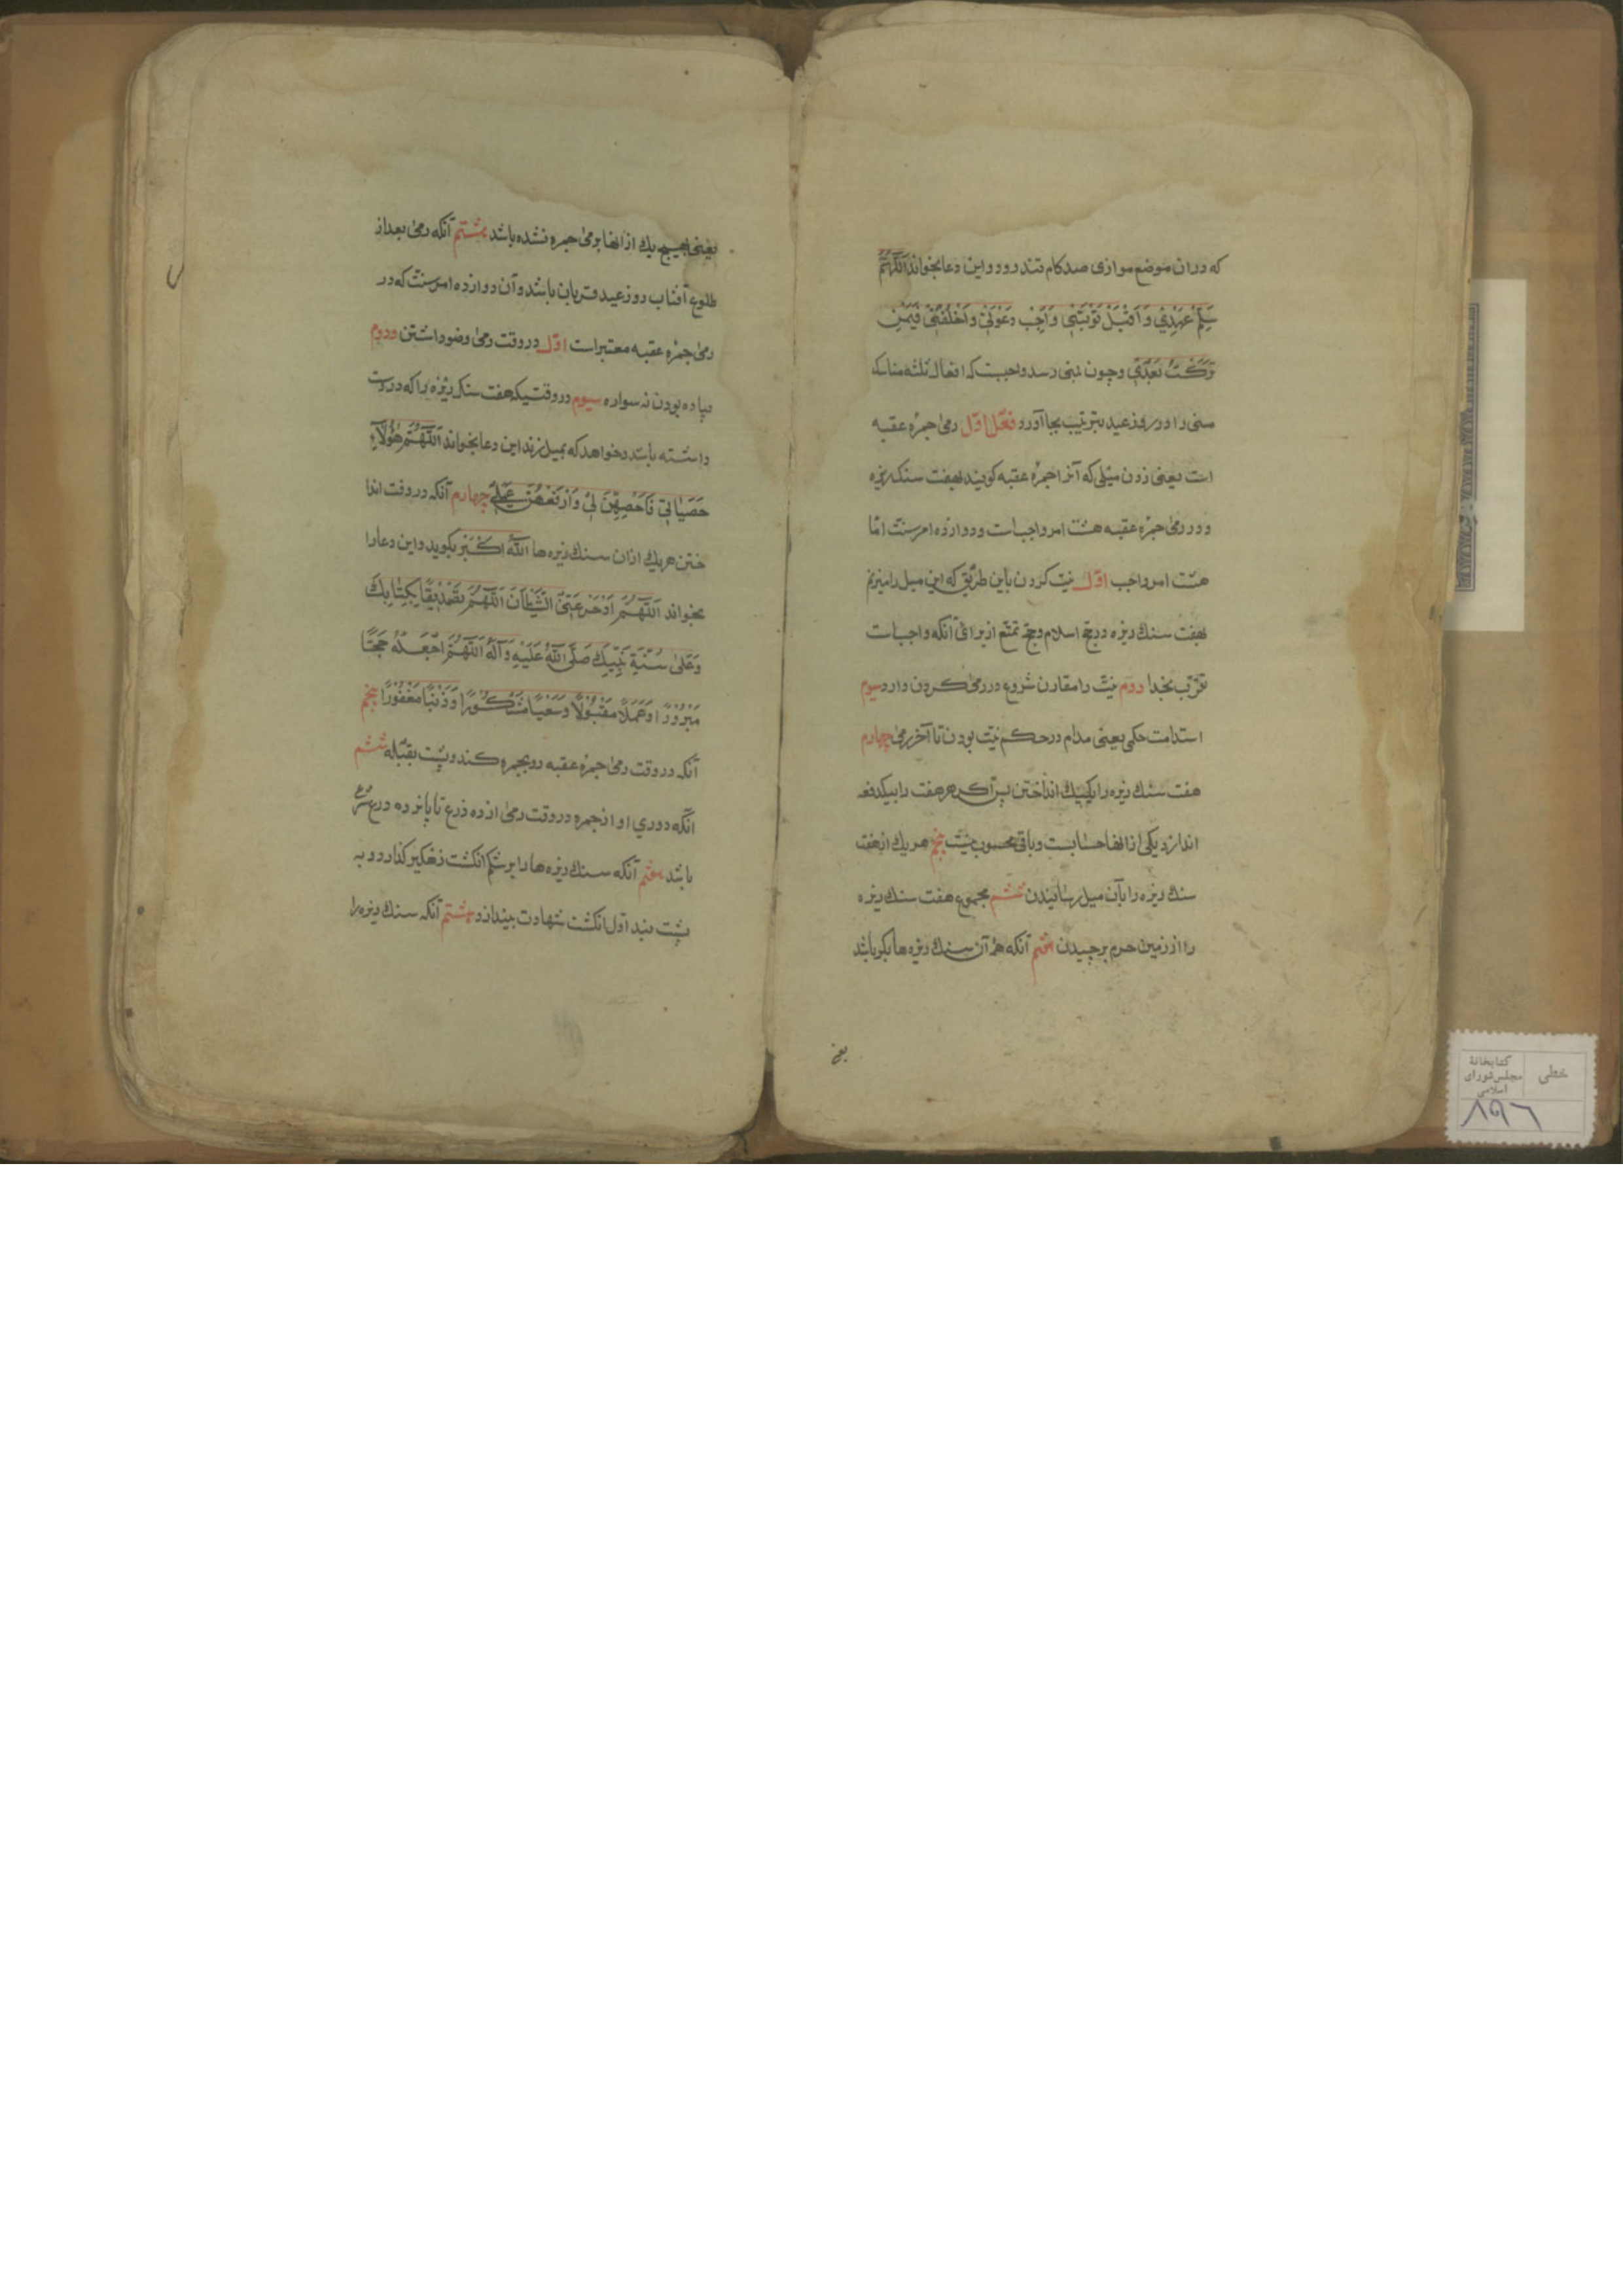 که در ان موضع موازی صد کام تند رود و این دعا بخواند اَللّٰهُمَّ
سَلِّمْ عَهْدِیْ وَ اَقْبَلْ تَوْبَتِیْ وَ اَجِبْ دَعْوَتِیْ وَ اخْلُفْنِیْ فِیْمَنْ
تَرَکْتُ بَعْدِیْ و چون بمنی رسد واجبست که افعال ثلثه مناسک
منی را در روز عید بترتیب بجا آورد فعل اوّل رمی جمرهٔ عقبه
است یعنی زدن میلی که آنرا جمرهٔ عقبه کویند بهفت سنک ریزه
و در رمی جمرهٔ عقبه هشت امر واجبات و دوازده امر سنت امّا
هشت امر واجب اوّل نیّت کردن باین طریق که این میل را میزنم
بهفت سنک ریزه در حج اسلام و حج تمتع از برای آنکه واجبات
تقرّب بخدا دوم نیّت را مقارن شروع در رمی کردن دارد سیوم
استدامت حکمی یعنی مدام در حکم نیّت بودن تا آخر رمی چهارم
هفت سنک ریزه را یکیک انداختن پس اکر هر هفت را بیکدفعه
اندازد یکی از انها حسابست و باقی محسوب نیست پنجم هر یک از هفت
سنک ریزه را بآن میل رسانیدن ششم مجموع هفت سنک ریزه
را از زمین حرم برچیدن هفتم آنکه همه آن سنک ریزه ها بکر باشد
یعنی
یعنی بهیچ یک از انها برمی جمره نشده باشد هشتم آنکه رمی بعد از
طلوع آفتاب روز عید قربان باشد و آن دوازده امر سنت که در
رمی جمرهٔ عقبه معتبر است اوّل در وقت رمی وضو داشتن دویم
پیاده بودن نه سواره سیوم در وقتیکه هفت سنک ریزه را که در دست
داشته باشد و خواهد که بمیل زند این دعا بخواند اَللّٰهُمَّ هٰؤُلَآءِ
حَصَیَاتِیْ فَاَحْصِهِنَّ لِیْ وَ ارْفَعْهُنَّ عَمَلِیْ چهارم آنکه در وقت اندا
ختن هر یک از ان سنک ریزه ها اَللّٰهُ اَکْبَرْ بکوید و این دعا را
بخواند اَللّٰهُمَّ ادْحَرْ عَنِّی الشَّیْطَانَ اَللّٰهُمَّ تَصْدِیْقًا بِکِتَابِکَ
وَ عَلٰی سُنَّةِ نَبِیِّکَ صَلَّی اللّٰهُ عَلَیْهِ وَ آلِهِ اَللّٰهُمَّ اجْعَلْهُ حَجًّا
مَبْرُوْرًا وَ عَمَلًا مَقْبُوْلًا وَ سَعْیًا مَشْکُوْرًا وَ ذَنْبًا مَغْفُوْرًا پنجم
آنکه در وقت رمی جمرهٔ عقبه رو بجمره کند و پشت بقبله ششم
آنکه دوری او از جمره در وقت رمی از ده ذرع تا پانزده ذرع شرعی
باشد هفتم آنکه سنک ریزه ها را بر شکم انکشت زهکیر کذارد و به
پشت بند اول انکشت شهادت بیندازد هشتم آنکه سنک ریزه را
خطی
کتابخانهٔ
مجلس شورای
اسلامی
۸۹۶